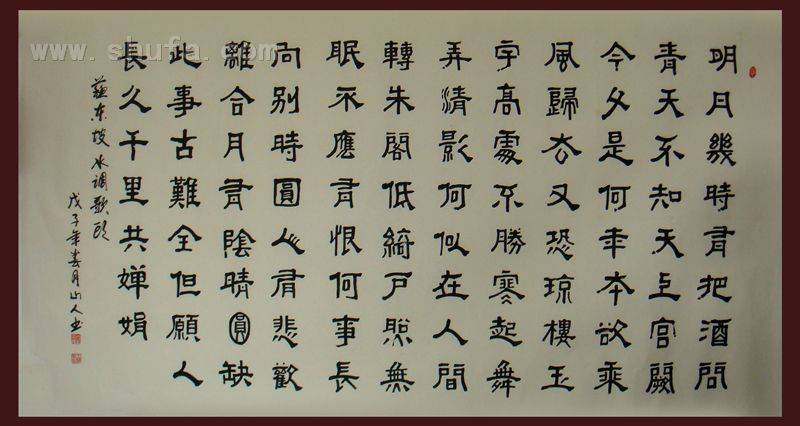 www.shufa.com
明月幾時有把酒問
青天不知天上宮闕
今夕是何年本欲乘
風歸去又恐琼樓玉
宇高處不勝寒起舞
弄清影何似在人間
轉朱閣低綺戶照無
眠不應有恨何事長
向別時圓人有悲歡
離合月有陰晴圓缺
此事古難全但願人
長久千里共嬋娟
蘇東坡水调歌頭
戊子年春月山人书